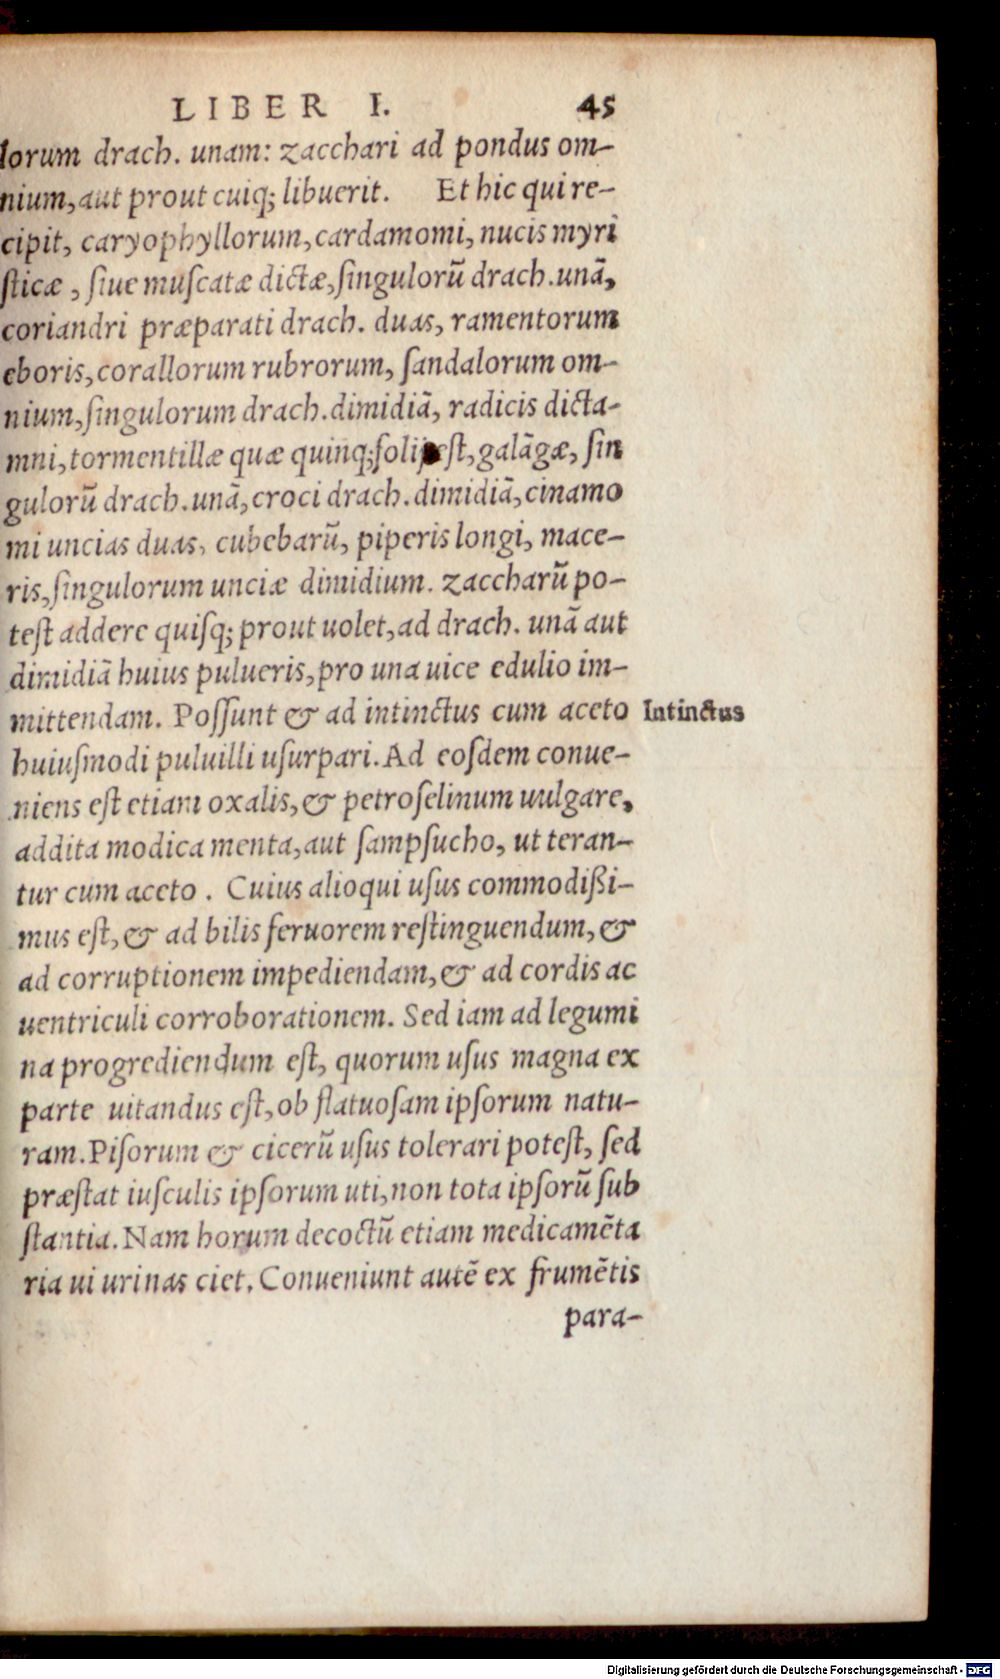 LIBER I. 45
lorum drach. unam: zacchari ad pondus om-
nium, aut prout cuiq; libuerit. Et hic qui re-
cipit, caryophyllorum, cardamomi, nucis myri
sticæ, siue muscatæ dictæ, singulorũ drach. unã,
coriandri præparati drach. duas, ramentorum
eboris, corallorum rubrorum, sandalorum om-
nium, singulorum drach. dimidiã, radicis dicta-
mni, tormentillæ quæ quinq; est, galãgæ, sin
gulorũ drach. unã, croci drach. dimidiã, cinamo
mi uncias duas, cubebarũ, piperis longi, mace-
ris, singulorum unciæ dimidium. zaccharũ po-
test addere quisq; prout uolet, ad drach. unã aut
dimidiã huius pulueris, pro una uice edulio im-
mittendam. Possunt & ad intinctus cum aceto
Intinctus
huiusmodi puluilli usurpari. Ad eosdem conue-
niens est etiam oxalis, & petroselinum uulgare,
addita modica menta, aut sampsucho, ut teran-
tur cum aceto. Cuius alioqui usus commodißi-
mus est, & ad bilis feruorem restinguendum, &
ad corruptionem impediendam, & ad cordis ac
uentriculi corroborationem. Sed iam ad legumi
na progrediendum est, quorum usus magna ex
parte uitandus est, ob flatuosam ipsorum natu-
ram. Pisorum & cicerũ usus tolerari potest, sed
præstat iusculis ipsorum uti, non tota ipsorũ sub
stantia. Nam horum decoctũ etiam medicamẽta
ria ui urinas ciet. Conueniunt autẽ ex frumẽtis
para-
Digitalisierung gefördert durch die Deutsche Forschungsgemeinschaft - DFG